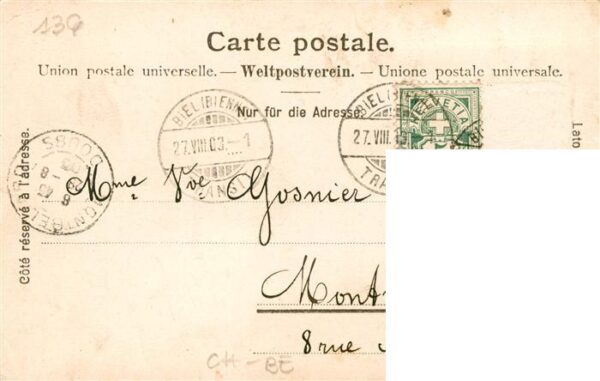 139
Carte postale.
Union postale universelle. — Weltpostverein. — Unione postale universale.
Nur für die Adresse
BIEL (BIENNE)
27.VIII.03.–1
BIEL (BIENNE)
27.VIII.
HELVETIA
FRANCO
DOUBS
Côté réservé à l'adresse.
Lato
Mme Vve Gosnier
Mont
8 rue
CH-BE